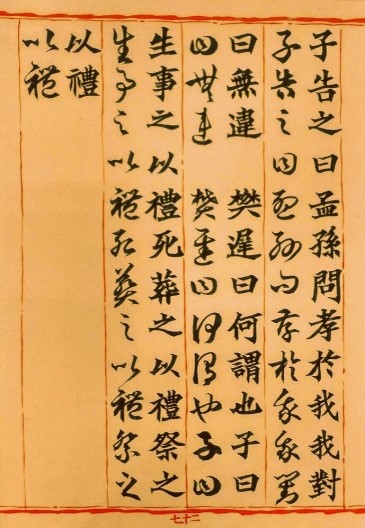 子告之曰孟孫問孝於我我對
子告之曰孟孫問孝於我我對
曰無違 樊遲曰何謂也子曰
曰無違 樊遲曰何謂也子曰
生事之以禮死葬之以禮祭之
生事之以禮死葬之以禮祭之
以禮
以禮
七十二